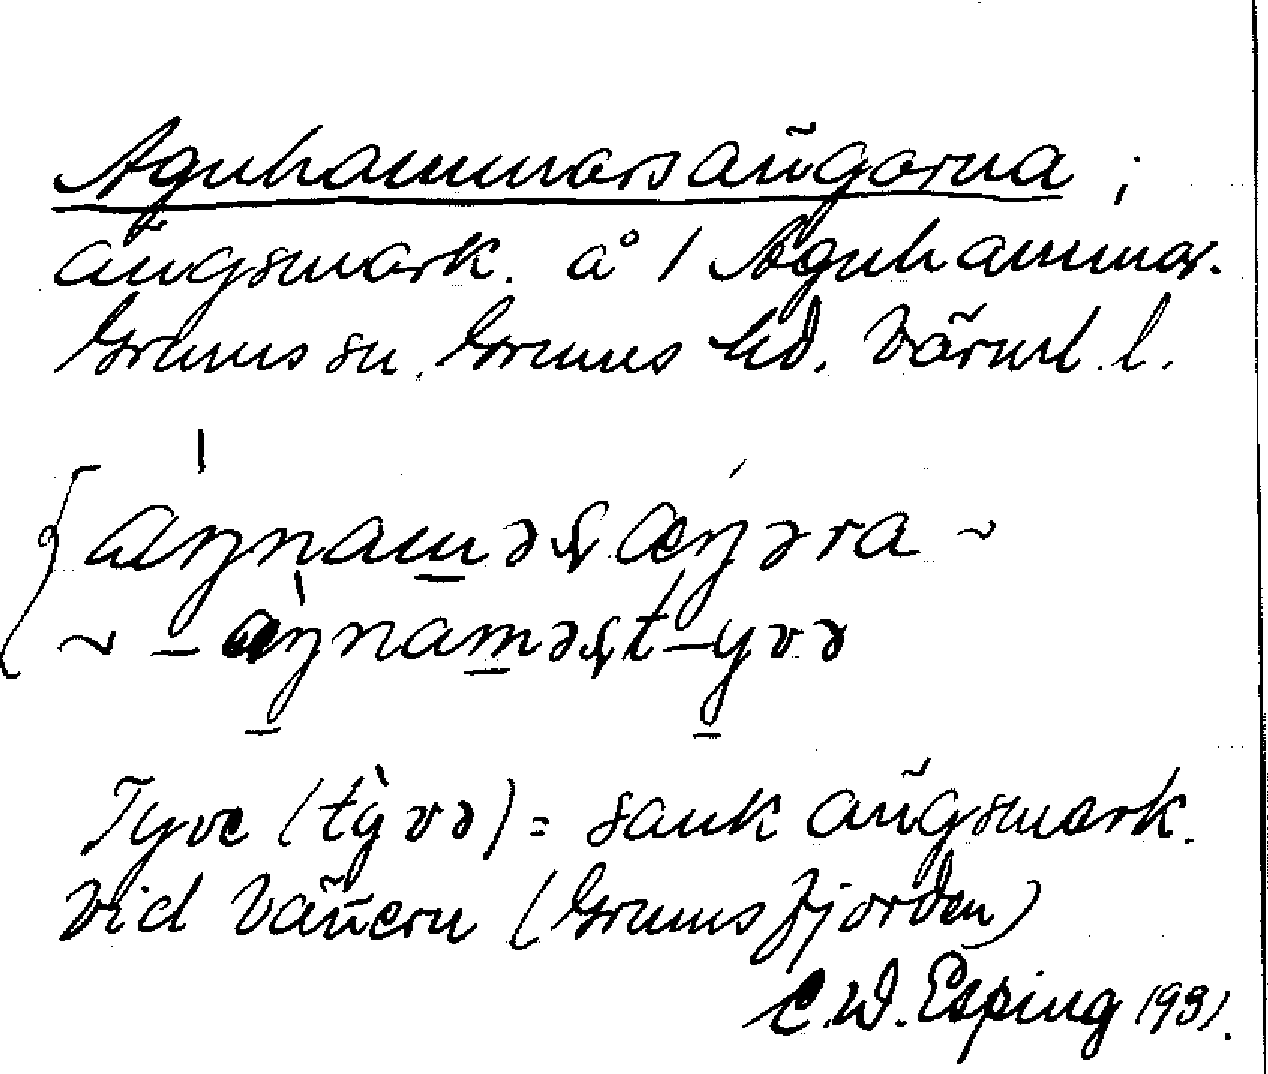 Agnhammarsängarna ;
ängsmark. å 1 Agnhammar.
Grums sn. Grums hd. Värml. l.
aŋnaməʂæŋəra ~
~ - aŋnaməʂt-yvə
Tyve (tỳvə) = sank ängsmark.
vid Vänern (Grumsfjorden)
C.W. Esping 1931.